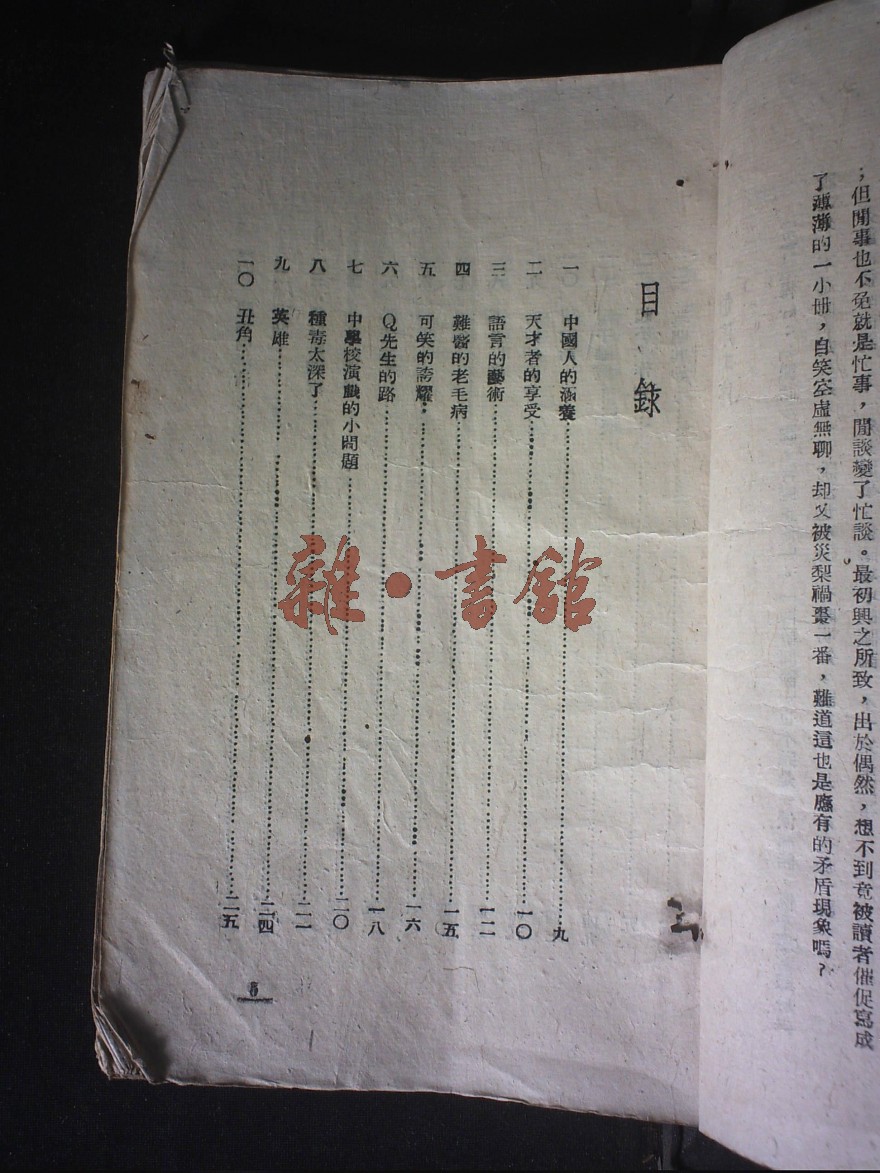 ；但閒事也不免就是忙事，閒談變了忙談。最初興之所致，出於偶然，想不到竟被讀者催促寫成
了薄薄的一小冊，自笑空虛無聊，却又被災梨禍棗一番，難道這也是應有的矛盾現象嗎？
目錄
一　中國人的涵養……………………九
二　天才者的享受……………………一〇
三　語言的藝術……………………一二
四　難醫的老毛病……………………一五
五　可笑的誇耀……………………一六
六　Q先生的路……………………一八
七　中學校演戲的小問題……………………二〇
八　種毒太深了……………………二二
九　英雄……………………二四
一〇　丑角……………………二五
5
雜·書館